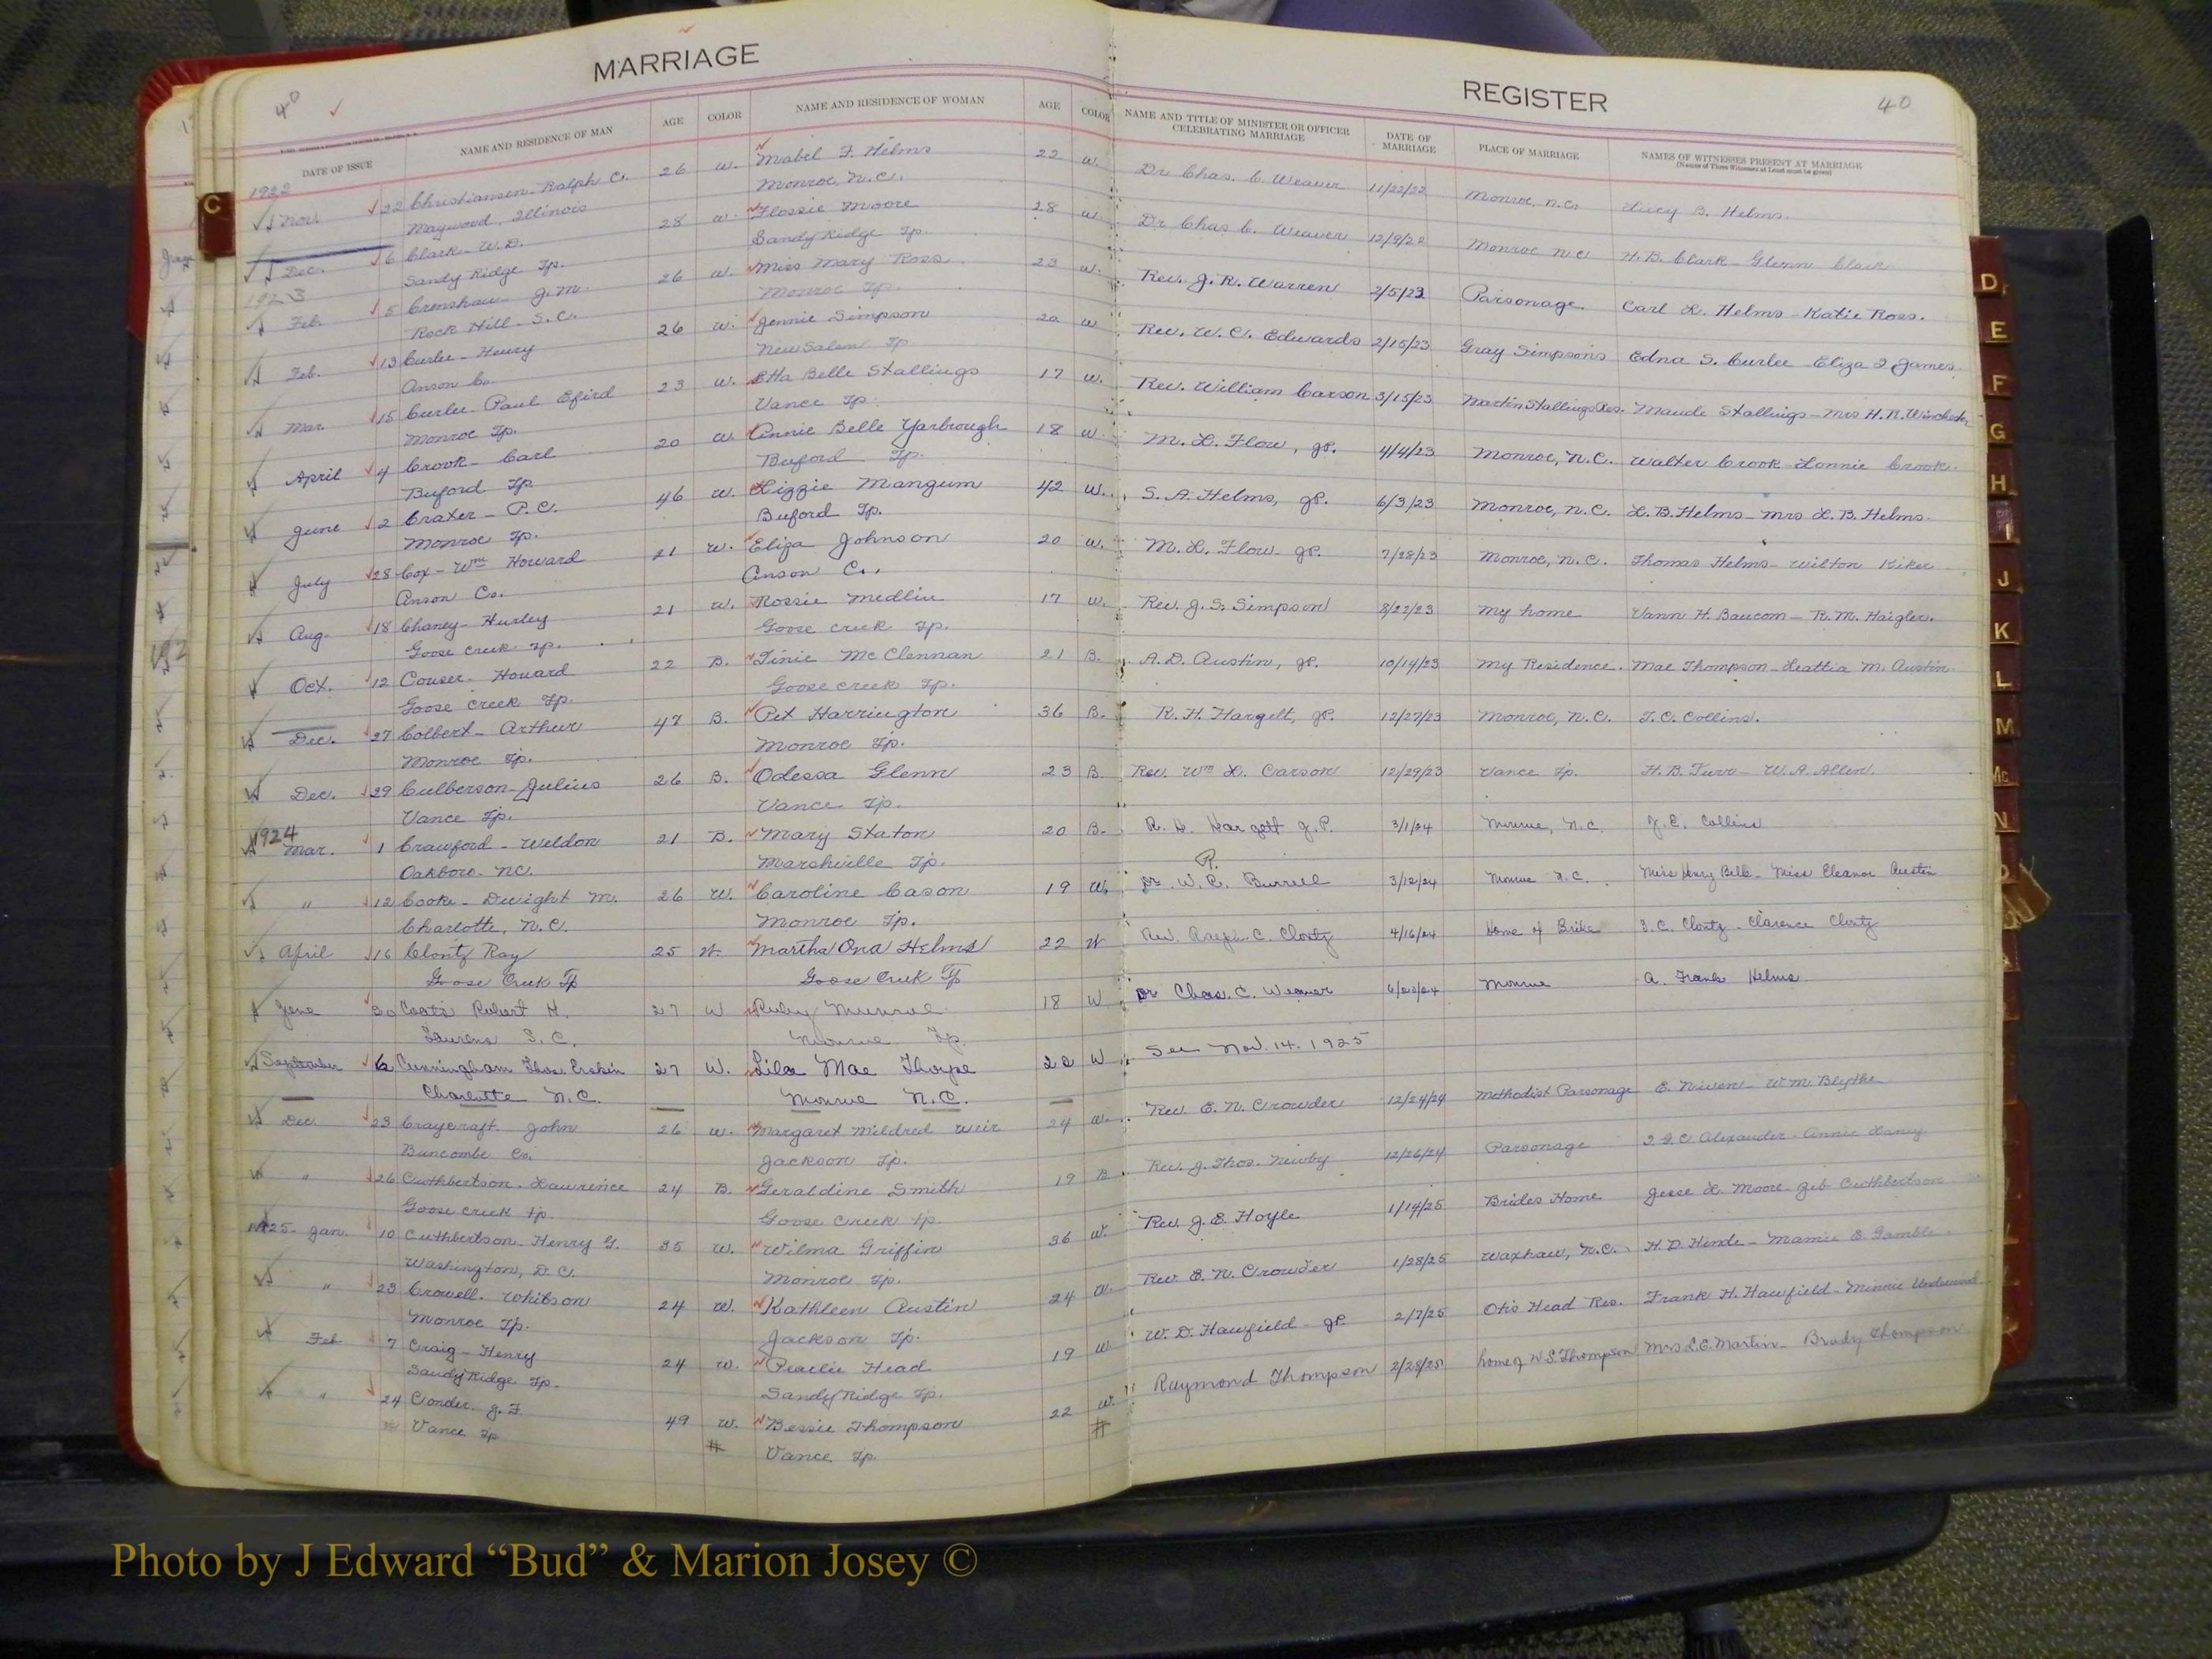 MARRIAGE REGISTER
40 40
DATE OF ISSUE NAME AND RESIDENCE OF MAN AGE COLOR NAME AND RESIDENCE OF WOMAN AGE COLOR NAME AND TITLE OF MINISTER OR OFFICER CELEBRATING MARRIAGE DATE OF MARRIAGE PLACE OF MARRIAGE NAMES OF WITNESSES PRESENT AT MARRIAGE
(Names of Three Witnesses at Least must be given)
1922
Nov. 22 Christiansen - Ralph C. 26 W. Mabel F. Helms 22 W. Dr Chas. C. Weaver 11/22/22 Monroe, N.C. Lucy B. Helms.
Maywood, Illinois Monroe, N.C.
Dec. 6 Clark - W.D. 28 W. Flossie Moore 28 W Dr Chas C. Weaver 12/9/22 Monroe N.C. H.B. Clark - Glenn Clark
Sandy Ridge Tp. Sandy Ridge Tp.
1923
Feb. 5 Crenshaw - J.M. 26 W. Miss Mary Ross 23 W. Rev. J.R. Warren 2/5/23 Parsonage Carl L. Helms - Katie Ross.
Rock Hill - S.C. Monroe Tp.
Feb. 13 Curlee - Henry 26 W. Jennie Simpson 20 W Rev. W. C. Edwards 2/15/23 Gray Simpson's Edna S. Curlee - Eliza J James.
Anson Co. New Salem Tp
Mar. 15 Curlee - Paul Efird 23 W. Etta Belle Stallings 17 W. Rev. William Carson 3/15/23 Martin Stallings Res. Maude Stallings - Mrs H.R. Winchester
Monroe Tp. Vance Tp.
April 4 Crook - Carl 20 W. Annie Belle Yarbrough 18 W. M. L. Flow, JP. 4/4/23 Monroe, N.C. Walter Crook - Lonnie Crook.
Buford Tp. Buford Tp.
June 2 Craxer - P.C. 46 W. Lizzie Mangum 42 W. S. A. Helms, JP. 6/3/23 Monroe, N.C. L.B. Helms - Mrs L.B. Helms.
Monroe Tp. Buford Tp.
July 28 Cox - Wm Howard 21 W. Eliza Johnson 20 W. M. L. Flow - JP. 7/28/23 Monroe, N.C. Thomas Helms - Wilton Kiker
Anson Co. Anson Co.
Aug. 18 Chaney - Hurley 21 W. Rossie Medlin 17 W. Rev. J. S. Simpson 8/22/23 My home Vann H. Baucom - R.M. Haigler.
Goose creek Tp. Goose creek Tp.
Oct. 12 Couser - Howard 22 B. Tinie McClennan 21 B. A. D. Austin, JP. 10/14/23 My Residence. Mae Thompson - Leattia M. Austin
Goose creek Tp. Goose creek Tp.
Dec. 27 Colbert - Arthur 47 B. Pet Harrington 36 B. R. H. Hargett, JP. 12/27/23 Monroe, N.C. J. C. Collins.
Monroe Tp. Monroe Tp.
Dec. 29 Culberson - Julius 26 B. Odessa Glenn 23 B. Rev. Wm L. Carson 12/29/23 Vance Tp. H. B. Furr - W. A. Allen.
Vance Tp. Vance Tp.
1924
Mar. 1 Crawford - Weldon 21 B. Mary Staton 20 B. R. H. Hargett J.P. 3/1/24 Monroe, N.C. J. C. Collins
Oakboro - NC. Marshville Tp.
" 12 Cooke - Dwight M. 26 W. Caroline Cason 19 W. Dr. W. R. Burrell 3/12/24 Monroe N.C. Miss Henry Belk - Miss Eleanor Austin
Charlotte, N.C. Monroe Tp.
April 16 Clontz Ray 25 W. Martha Ona Helms 22 W Rev. C. Clontz 4/16/24 Home of Bride J. C. Clontz - Clarence Clontz
Goose Creek Tp Goose Creek Tp
June 20 Coats Robert H. 27 W Ruby Munroe 18 W Dr Chas. C. Weaver 6/20/24 Monroe A. Frank Helms
Laurens S.C. Monroe Tp.
September 6 Cunningham Thos. Erskin 27 W. Lila Mae Thorpe 20 W See Nov. 14. 1925
Charlotte N.C. Monroe N.C.
Dec. 23 Craycraft - John 26 W. Margaret Mildred Weir 24 W. Rev. E. N. Crowder 12/24/24 Methodist Parsonage E. Niven - W M Blythe
Buncombe Co. Jackson Tp.
" 26 Cuthbertson - Lawrence 24 B. Geraldine Smith 19 B. Rev. J. Thos. Newby 12/26/24 Parsonage Alexander - Annie Laney
Goose creek tp. Goose creek tp.
1925 - Jan. 10 Cuthbertson - Henry G. 35 W. Wilma Griffin 36 W. Rev J. E. Hoyle 1/14/25 Brides Home Jesse L. Moore - Zeb Cuthbertson
Washington, D.C. Monroe Tp.
" 23 Crowell - Whitson 24 W. Kathleen Austin 24 W. Rev. E. N. Crowder 1/28/25 Waxhaw, N.C. H. D. Hinde - Mamie E. Gamble
Monroe Tp. Jackson Tp.
Feb 7 Craig - Henry 24 W. Pearlie Head 19 W W. D. Hawfield - JP. 2/7/25 Otis Head Res. Frank H. Hawfield - Minnie Underwood
Sandy Ridge Tp. Sandy Ridge Tp.
" 24 Conder - J. F. 49 W. Bessie Thompson 22 W. Raymond Thompson 2/28/25 home of W. S. Thompson Mrs L. C. Martin - Brady Thompson
Vance Tp # Vance Tp. #
C
D
E
F
G
H
I
J
K
L
M
Mc
N
O
Photo by J Edward “Bud” & Marion Josey ©